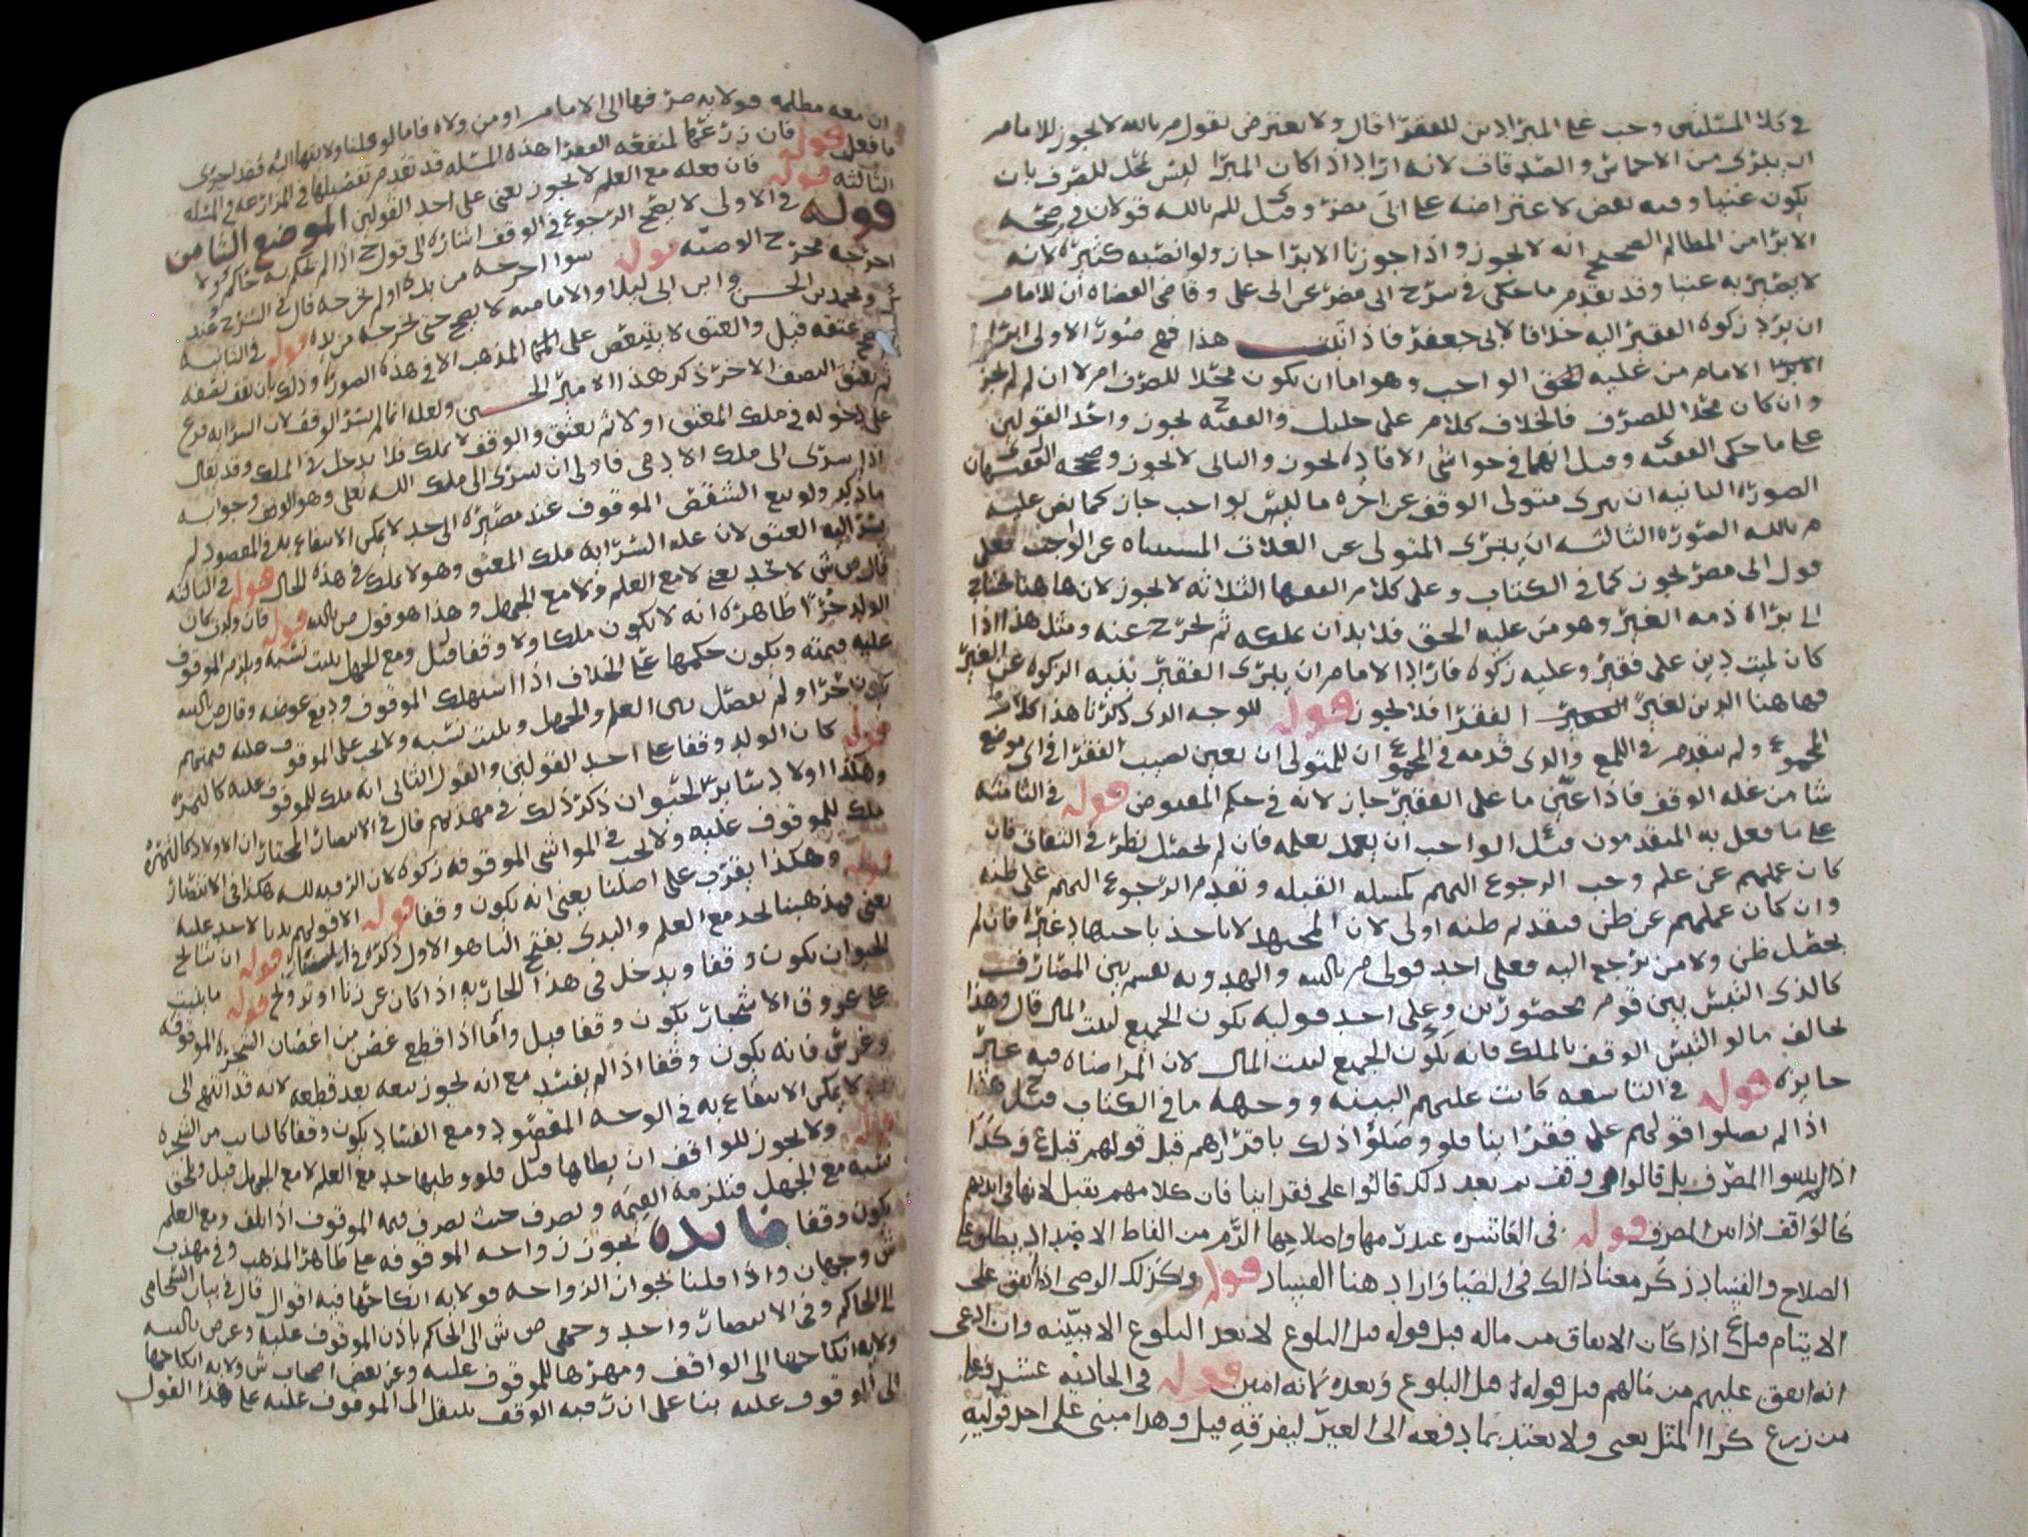 في كلا المسئلتين وجب على المبرا دين للفقرا قال ولا يعترض بقول م بالله لا يجوز للامام
ان يبرى من الاخماس والصدقات لانه اراد اذا كان المبرا ليس محل للصرف بان
يكون غنيا وفيه بعض لاعتراضه على انى مضر وقيل للم بالله قولان في صحة
الابرا من المظالم الصحيح انه لا يجوز واذا جوزنا الابرا جاز ولو انصبه كثيره لانه
لا يصير به غنيا وقد تقدم ما حكى في شرح ابى مضر عن ابى على وقاضى القضاه ان للامام
ان يرد زكوه الفقير اليه خلافا لابى جعفر فاذا هذا فهي صور الاولى ابرا
الامام من عليه الحق الواجب وهو اما ان يكون محلا للصرف ام لا ان لم لم يجز
وان كان محلا للصرف فالخلاف كلام على خليل والفقيه ح يجوز واحد القولين
على ما حكى الفقيه وقيل انهما في حواشى الافاده يجوز والثانى لا يجوز وصححه الفقيهان
الصوره الثانيه ان يبرى متولى الوقف عن اجره ما ليس بواجب جاز كما نص عليه
م بالله الصوره الثالثه ان يبرى المتولى عن الغلات المستثناه عن الواجب فعلى
قول ابى مضر يجوز كما في الكتاب وعلى كلام الفقها الثلاثه لا يجوز لان هاهنا يحتاج
الى براه ذمه الغير وهو من عليه الحق فلا بد ان يملكه ثم يخرج عنه ومثل هذا اذا
كان لميت دين على فقير وعليه زكوه فاراد الامام ان يبرى الفقير بنيه الزكوه عن الغير
فهاهنا الدين لغير الفقرا فلا يجوز قوله للوجه الذى ذكرنا هذا كلام ط
المجموع ولم يتقدم في اللمع والذى قدمه في المجموع ان للمتولى ان يعين نصيب الفقرا في اى موضع
شا من غله الوقف فاذا عين ما على الفقير جاز لانه في حكم المقبوض قوله في الثامنه
على ما فعل به المتقدمون قيل الواجب ان يعمل بعلمه فان لم يحصل نظر في الثقات فان
كان عملهم عن علم وجب الرجوع اليهم كمسله القبله وتقدم الرجوع اليهم على ظنه
وان كان عملهم عن ظن فتقديم ظنه اولى لان المجتهد لا ياخذ باجتهاد غيره فان لم
يحصل ظن ولا من يرجع اليه فعلى احد قولى م بالله والهدويه يقسم بين المصارف
كالذى التبس بين قوم محصورين وعلى احد قوليه يكون الجميع لبيت المال قال وهذا
يخالف ما لو التبس الوقف بالملك فانه يكون الجميع لبيت المال لان المراضاه فيه غير
جايزه قوله في التاسعه كانت عليهم البينه ووجهه ما في الكتاب قيل ح هذا
اذا لم يصلوا قولهم على فقرا بنا فلو وصلوا ذلك باقرارهم قبل قولهم قيل ع وكذا
اذا لم يبينوا المصرف بل قالوا هى وقف ثم بعد ذلك قالوا على فقرا بنا فان كلامهم يقبل لانها في ايديهم
كالواقف اذا بين المصرف قوله في العاشره عند رمها واصلاحها الرم من الفاظ الاضداد يطلق على
الصلاح والفساد ذكر معنا ذلك في الضيا واراد هنا الفساد قوله وكذلك الوصى اذا انفق على
الايتام قيل ع اذا كان الانفاق من ماله قبل قوله قبل البلوغ لا بعد البلوغ الا ببينه وان ادعى
انه انفق عليهم من مالهم قبل قوله قبل البلوغ وبعده لانه امين قوله في الحاديه عشر وعلى
من زرع كرا المثل يعنى ولا يعتد بما دفعه الى الغير ليفرقه قيل وهذا مبنى على احد قوليه
ان معه مظلمه فولايه صرفها الى الامام او من ولاه فاما لو قلنا ولايتها اليه فقد اجزى
ما فعل قوله فان زرعها لمنفعه الفقرا هذه المسله قد تقدم تفصيلها في المزارعه في المسله
الثالثه قوله فان فعله مع العلم لا يجوز يعنى على احد القولين الموضع الثامن
قوله في الاولى لا يصح الرجوع في الوقف اشاره الى قول ح اذا لم يحكم به حاكم ولا
اخرجه مخرج الوصيه قوله سوا اخرجه من يده او لم يخرجه قال في الشرح عند
ومحمد بن الحسن وابن ابى ليلى والاماميه لا يصح حتى يخرجه من يده قوله في الثانيه
صح عتقه قيل والعتق لا يتبعض على المذهب الا في هذه الصوره وذلك بان يقف نصفه
ثم يعتق النصف الاخر ذكر هذا الامير الحسين ولعله انما لم يسر الوقف لان السرايه فرع
على دخوله في ملك المعتق اولا ثم يعتق والوقف لا يملك فلا يدخل في الملك وقد يقال
اذا سرى الى ملك الادمى فاولى ان يسرى الى ملك الله تعلى وهو الوقف وجوابه
ما ذكر ولو بيع الشقص الموقوف عند مصيره الى حد لا يمكن الانتفاع به في المقصود لم
يسر اليه العتق لان عله السرايه ملك المعتق وهو لا يملك في هذه الحال قوله في الثالثه
قال ص ش لا يحد يعنى لا مع العلم ولا مع الجهل وهذا هو قول ص بالله قوله فان ولدت كان
الولد حرا ظاهره انه لا يكون ملكا ولا وقفا قيل ومع الجهل يثبت نسبه ويلزم الموقوف
عليه قيمته ويكون حكمها على الخلاف اذا استهلك الموقوف ودفع عوضه وقال ص بالله
يكون حرا ولم يفصل بين العلم والجهل ويثبت نسبه ولا يجب على الموقوف عليه قيمتهم
قوله كان الولد وقفا على احد القولين والقول الثانى انه ملك للموقوف عليه كالثمره
وهكذا اولاد سائر الحيوان ذكر ذلك في مهذبهم قال في الانتصار المختار ان الاولاد كالثمره
ملك للموقوف عليه ولا يجب في المواشى الموقوفه زكوه لان الرقبه لله هكذا في الانتصار
قوله وهكذا يفرق على اصلنا يعنى انه يكون وقفا قوله الا قولهم بانه لا حد عليه
يعنى فمذهبنا يحد مع العلم والبدى بفتح الثا هو الاول ذكره في قوله ان نتائج
الحيوان يكون وقفا ويدخل في هذا الجاريه اذا كان عن زنا او تزويج قوله ما ينبت
على عروق الاشجار يكون وقفا قيل واما اذا قطع غصن من اغصان الشجره الموقوفه
وغرس فانه يكون وقفا اذا لم يفسد مع انه يجوز بيعه بعد قطعه لانه قد انتهى الى
حد لا يمكن الانتفاع به في الوجه المقصود ومع الفساد يكون وقفا كالنابت من الشجره
قوله ولا يجوز للواقف ان يطاها قيل فلو وطيها حد مع العلم لا مع الجهل قيل ويلحق
نسبه مع الجهل فتلزمه القيمه وتصرف حيث تصرف قيمه الموقوف اذا تلف ومع العلم
يكون وقفا فايده يجوز زواجه الموقوفه على ظاهر المذهب وفي مهذب
ش وجهان واذا قلنا بجواز الزواجه فولايه انكاحها فيه اقوال قال في بيان السحامى
الى الحاكم وفي الانتصار واحد وجهى ص ش الى الحاكم باذن الموقوف عليه وعن ص بالله
ولايه انكاحها الى الواقف ومهرها للموقوف عليه وعن بعض اصحاب ش ولايه انكاحها
الى الموقوف عليه بنا على ان رقبه الوقف ينتقل الى الموقوف عليه على هذا القول